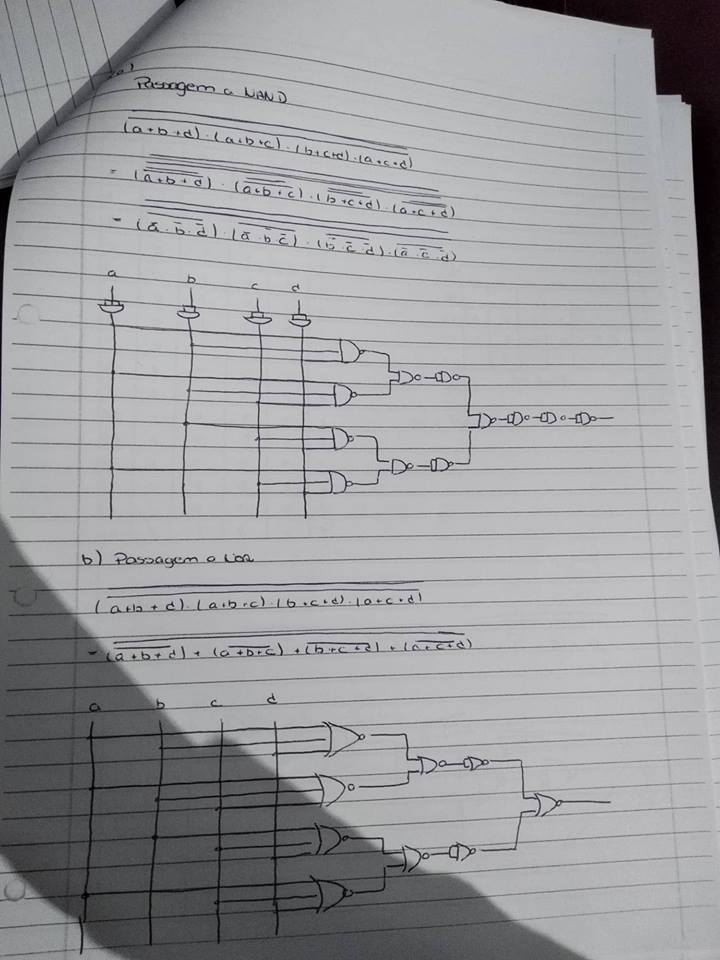 a)
Passagem a NAND
(a+b+d).(a+b+c).(b+c+d).(a+c+d)
= (a+b+d).(a+b+c).(b+c+d).(a+c+d)
= (a̅.b̅.d̅).(a̅.b̅.c̅).(b̅.c̅.d̅).(a̅.c̅.d̅)
a b c d
b) Passagem a NOR
(a+b+d).(a+b+c).(b+c+d).(a+c+d)
= (a+b+d)+(a+b+c)+(b+c+d)+(a+c+d)
a b c d